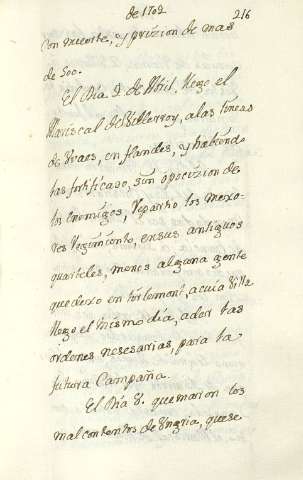 de 1702
216
con muerte, y prizion de mas
de 500.
El Dia 2. de Abril, llego el
Mariscal de Villeroy, a las lineas
de en flandes, y habiendo
las fortificado, sin opocizion de
los Enemigos, Repartio los
en sus antiguos
quarteles, menos alguna gente
que dexo en tirlemont, a cuia Villa
llego el mismo dia, a dar las
ordenes nesesarias, para la
futura Campaña.
El Dia 8. quemaron los
mal contentos de Vngria, quese